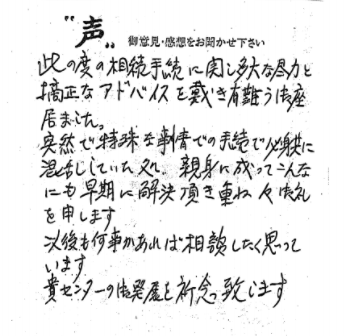 "声" 御意見・感想をお聞かせ下さい
此の度の相続手続に関し多大な尽力と
適正なアドバイスを戴き有難う御座
居ました。
突然で特殊な事情での手続で
混乱していた 親身に成ってこんな
にも早期に解決頂き重ね々御礼
を申します
以後も何事かあれば相談したく思って
います
貴センターの御発展を祈念致します